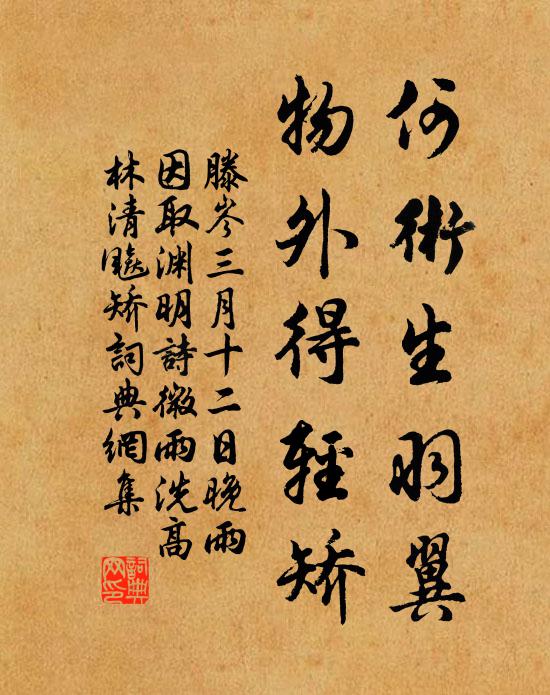 何術生羽翼
物外得輕矯
滕岑三月十二日晚雨
因取淵明詩微雨洗高
林清飈矯詞典網集
詞典网印